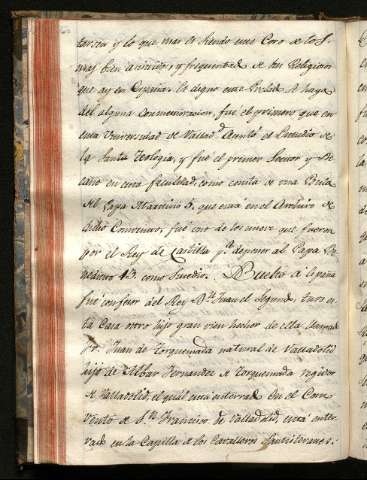 tarcen y lo que mas es siendo una Casa de las
mas bien asistidas, y frequentad. de don Religiosos
que ay en España: es digno este Prelad. de haze
del alguna conmemoracion, fue el primero que en
esta Universidad de Vallad. asento el estudio de
la Santa Teologia, y fue el primer Lector y De
cano en esta facultad, como consta de una Bula
del Papa Martino 5. que esta en el Archivo de
dicho Convento, fue uno de los nueve que fueron
por el Rey de Castilla pa. deponer al Papa Be
nedicto 13. como Juedio. Buelto a España
fue confesor del Rey Dn. Juan el segundo, tuvo es
ta Casa otro hijo gran bien hechor de ella llamad.
Fr. Juan de torquemada natural de Valladolid
hijo de Albar Fernandez de torquemada regidor
de Valladolid, el qual esta enterrad. en el Con
vento de Sn. Francisco de Valladolid, esta enter
rad. en la Capilla de los Cavalleros